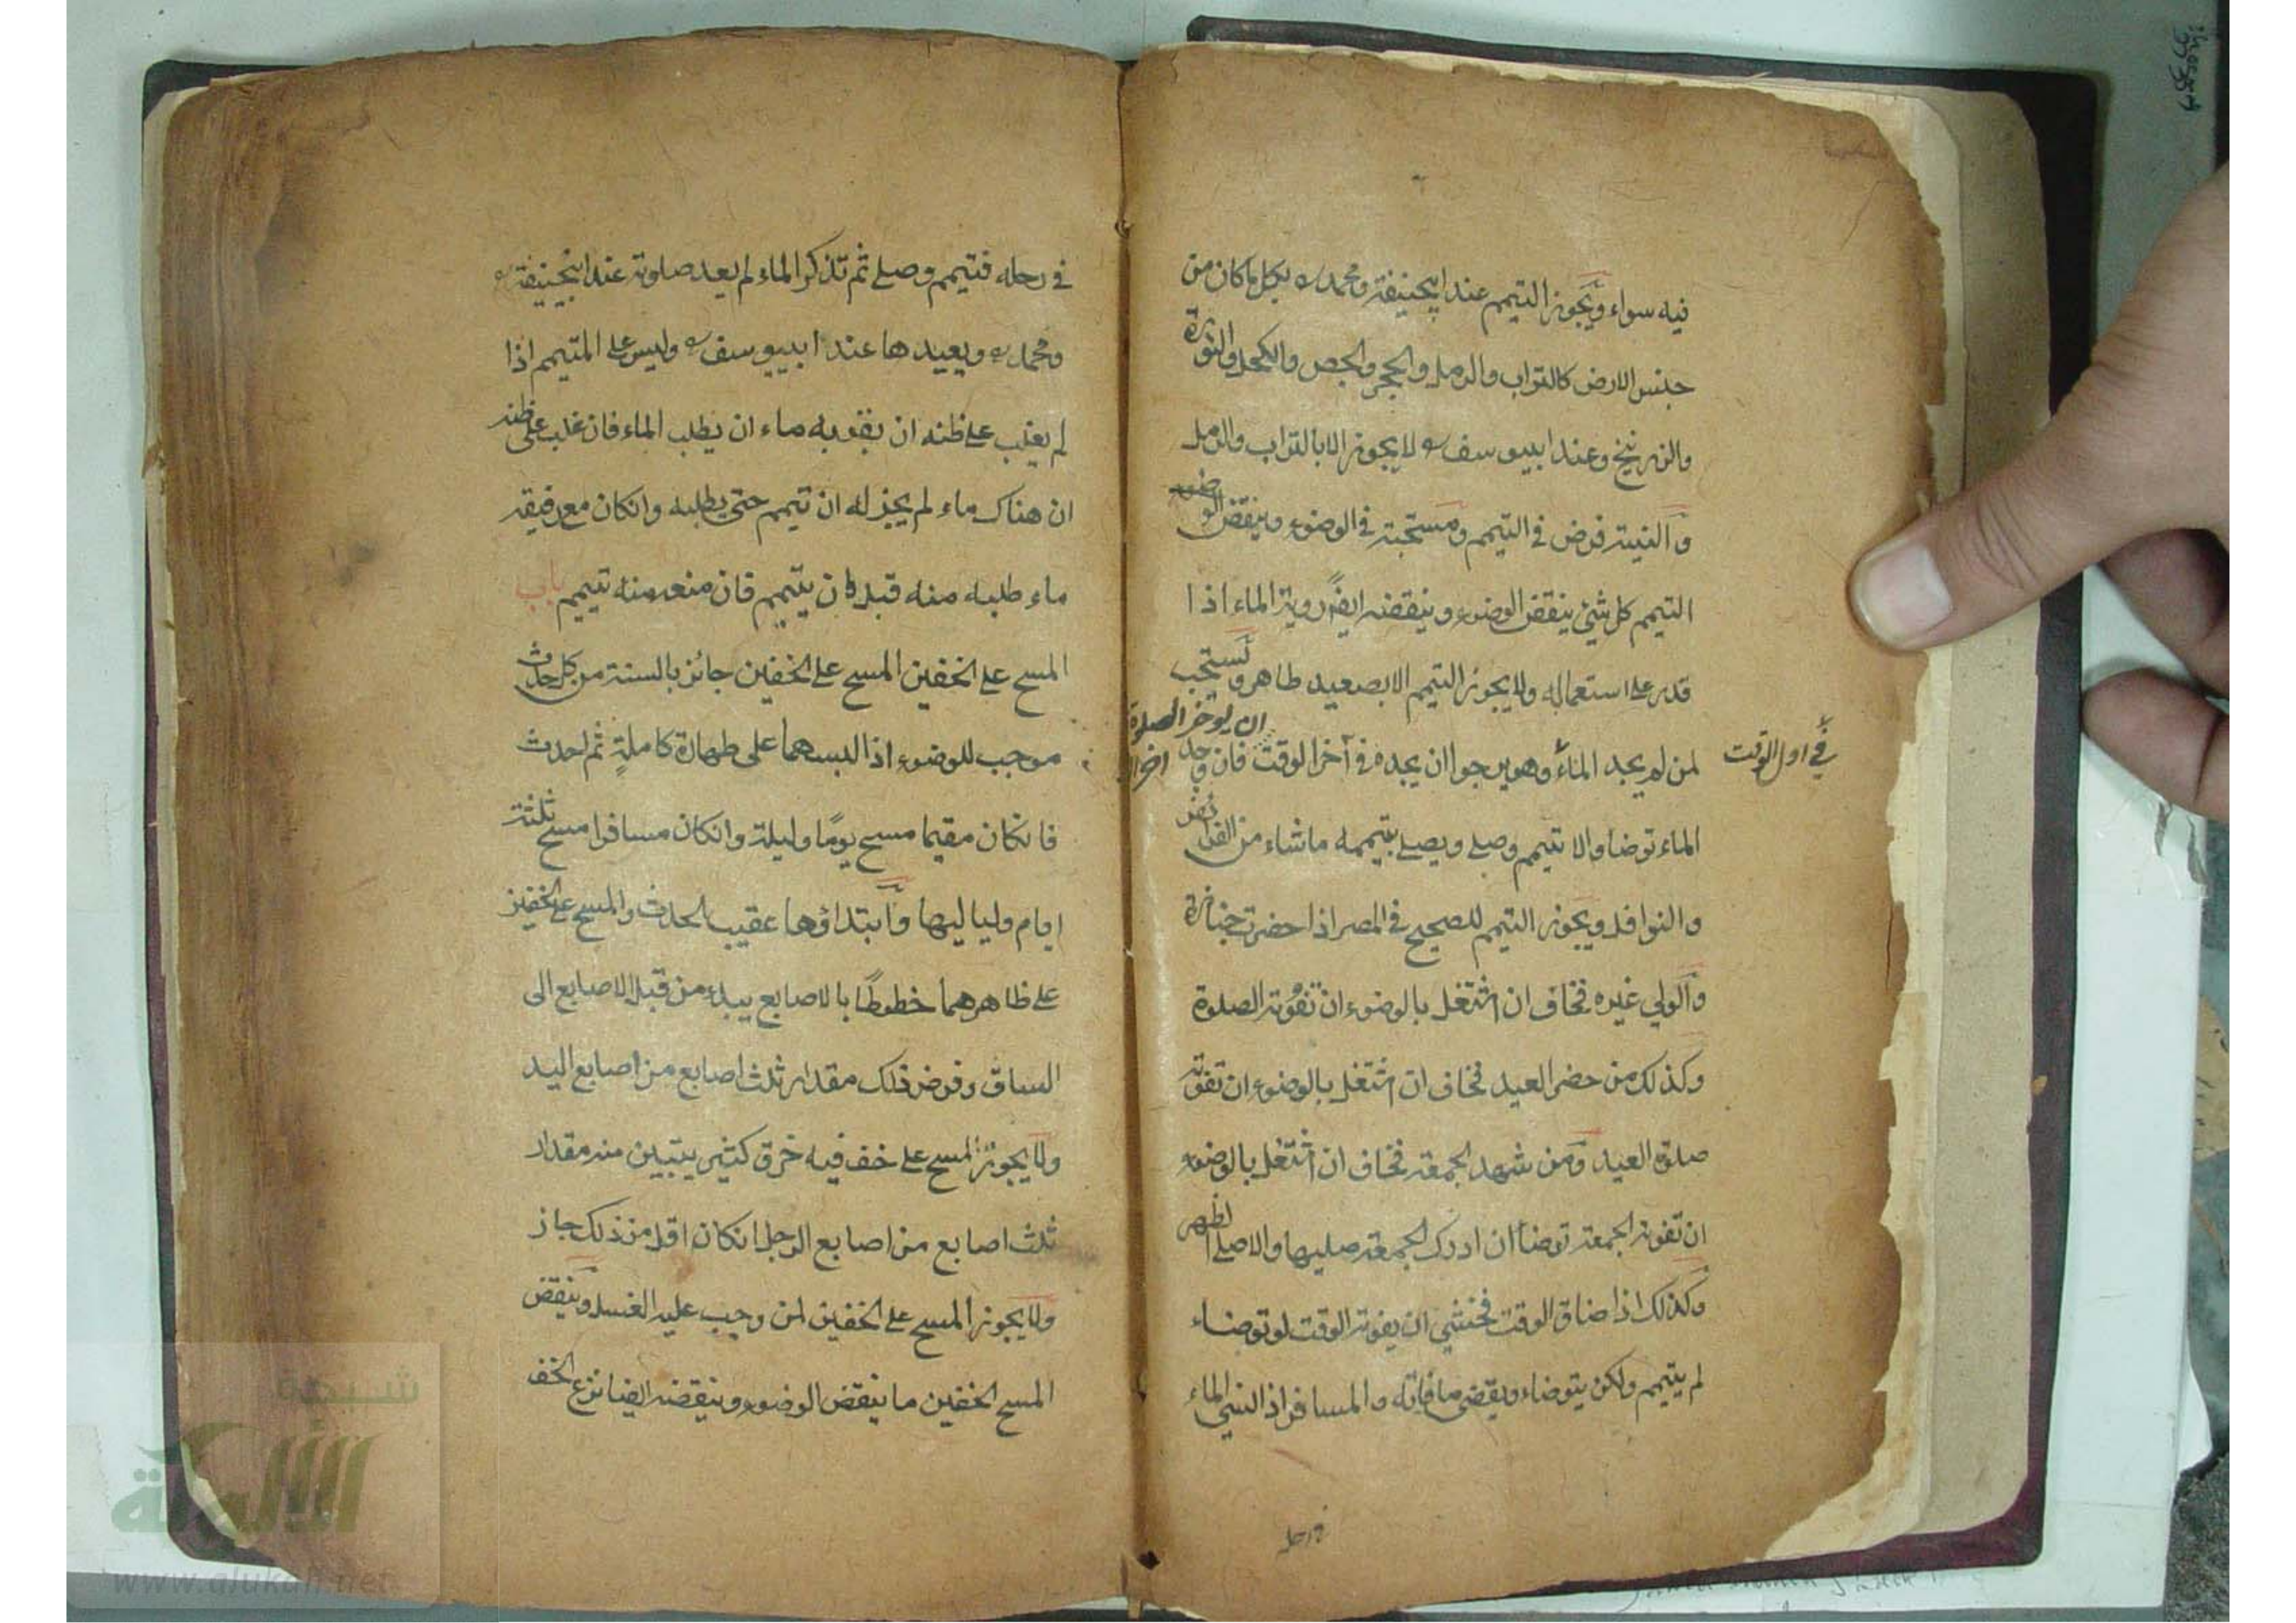 فيه سواء ويجوز التيمم عند ابيحنيفة ومحمد رح بكل ما كان من
جنس الارض كالتراب والرمل والحجر والجص والكحل والنورة
والزرنيخ وعند ابييوسف رح لا يجوز الا بالتراب والرمل
والنية فرض في التيمم ومستحبة في الوضوء وينقض
التيمم كل شئ ينقض الوضوء وينقضه ايضًا روية الماء اذا
قدر على استعماله ولا يجوز التيمم الا بصعيد طاهر ويستحب
ان يوخر الصلوة
لمن لم يجد الماء وهو يرجوا ان يجده في آخر الوقت فان وجد
في اول الوقت
الماء توضا والا تيمم وصلے ويصلے بتيممه ما شاء من الفرائض
والنوافل ويجوز التيمم للصحيح في المصر اذا حضرت جنازة
والولي غيره فخاف ان اشتغل بالوضوء ان تفوته الصلوة
وكذلك من حضر العيد فخاف ان اشتغل بالوضوء ان تفوته
صلوة العيد ومن شهد الجمعة فخاف ان اشتغل بالوضوء
ان تفوته الجمعة توضأ ان ادرك الجمعة صليها والا صلے الظهر
وكذلك اذا ضاق الوقت فخشي ان يفوته الوقت لو توضاء
لم يتيمم ولكن يتوضاء ويقضي ما فاته والمسافر اذا نسي الماء
في رحله
في رحله فتيمم وصلے ثم تذكر الماء لم يعد صلوته عند ابيحنيفة رح
ومحمد رح ويعيدها عند ابييوسف رح وليس علے المتيمم اذا
لم يغلب علے ظنه ان بقربه ماء ان يطلب الماء فان غلب على ظنه
ان هناك ماء لم يجز له ان تيمم حتى يطلبه وانكان مع رفيقه
ماء طلبه منه قبل ان يتيمم فان منعه منه تيمم باب
المسح علے الخفين المسح علے الخفين جائز بالسنة من كل حدث
موجب للوضوء اذا لبسهما على طهارة كاملةٍ ثم احدث
فانكان مقيما مسح يومًا وليلة وانكان مسافرا مسح ثلثة
ايام ولياليها وابتداؤها عقيب الحدث والمسح علے الخفين
علے ظاهرهما خطوطًا بالاصابع يبدء من قبل الاصابع الى
الساق وفرض ذلك مقدار ثلث اصابع من اصابع اليد
ولا يجوز المسح علے خف فيه خرق كثير يتبين منه مقدار
ثلث اصابع من اصابع الرجل انكان اقل من ذلك جاز
ولا يجوز المسح علے الخفين لمن وجب عليه الغسل وينقض
المسح الخفين ما ينقض الوضوء وينقضه ايضا نزع الخف
شبكة
الألوكة
www.alukah.net